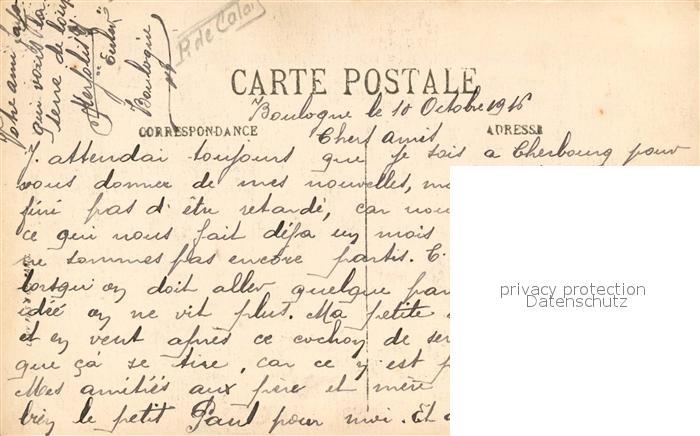 P. de Calais
CARTE POSTALE
Boulogne le 10 Octobre 1916
CORRESPONDANCE
ADRESSE
Chers amis
J. attendai toujours que je sois a Cherbourg pour
vous donner de mes nouvelles,
fini pas d' être retardé, car nou
ce qui nous fait déja un mois
ne sommes pas encore partis. C.
lorsqu'on doit aller quelque par
idée on ne vit plus. Ma petite
et en veut après ce cochon de ser
que ça se tire, car ce n est p
Mes amitiés aux frère et mère
bien le petit Paul pour mivi. Et
Votre ami
qui vous
terre de
Boulogne
privacy protection
Datenschutz